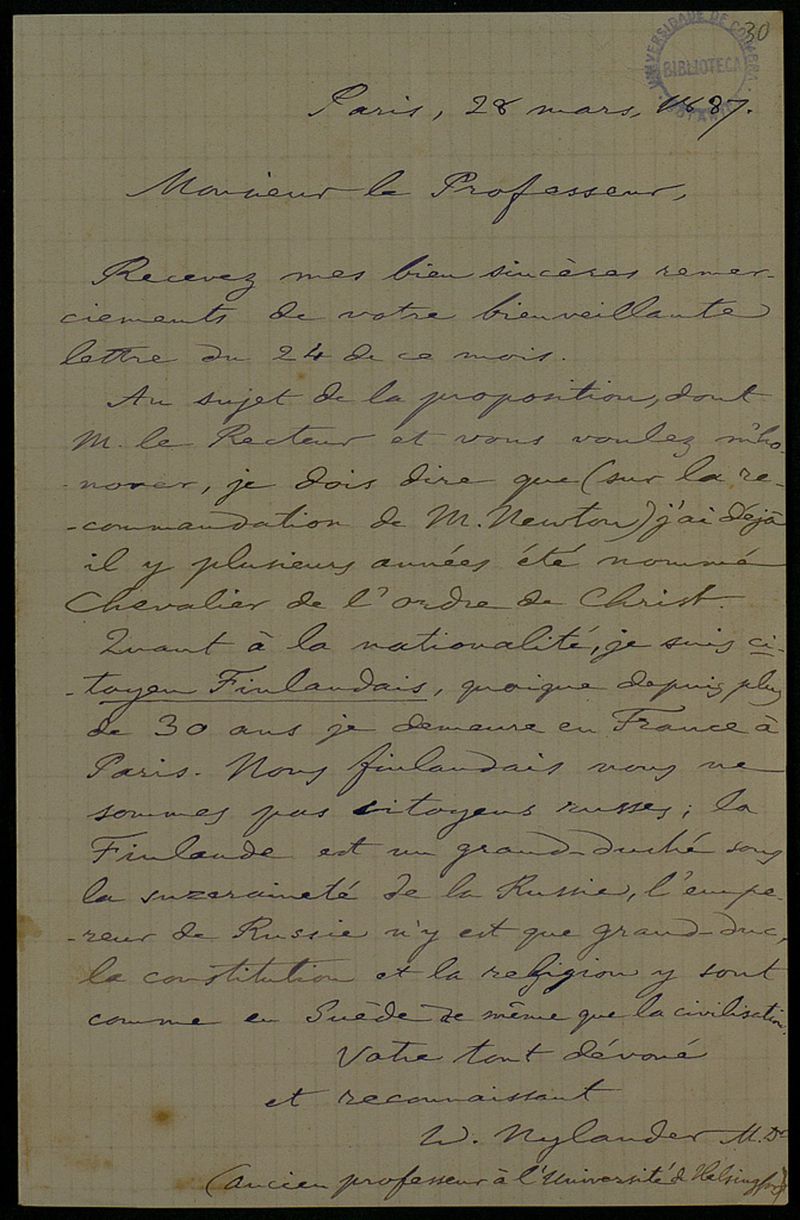 30
UNIVERSIDADE DE COIMBRA
BIBLIOTECA
Paris, 28 mars, 1887.
Monsieur le Professeur,
Recevez mes bien sincères remer-
ciements de votre bienveillante
lettre du 24 de ce mois.
Au sujet de la proposition, dont
M. le Recteur et vous voulez m'ho-
-norer, je dois dire que (sur la re-
-commandation de M. Newton) j'ai déjà
il y plusieurs années été nommé
Chevalier de l'ordre de Christ.
Quant à la nationalité, je suis ci-
-toyen Finlandais, quoique depuis plus
de 30 ans je demeure en France à
Paris. Nous finlandais nous ne
sommes pas citoyens russes; la
Finlande est un grand-duché sous
la suzeraineté de la Russie, l'empe-
-reur de Russie n'y est que grand-duc,
la constitution et la religion y sont
comme en Suède de même que la civilisation.
Votre tout dévoué
et reconnaissant
W. Nylander M. Dr
(ancien professeur à l'Université d Helsingfors)